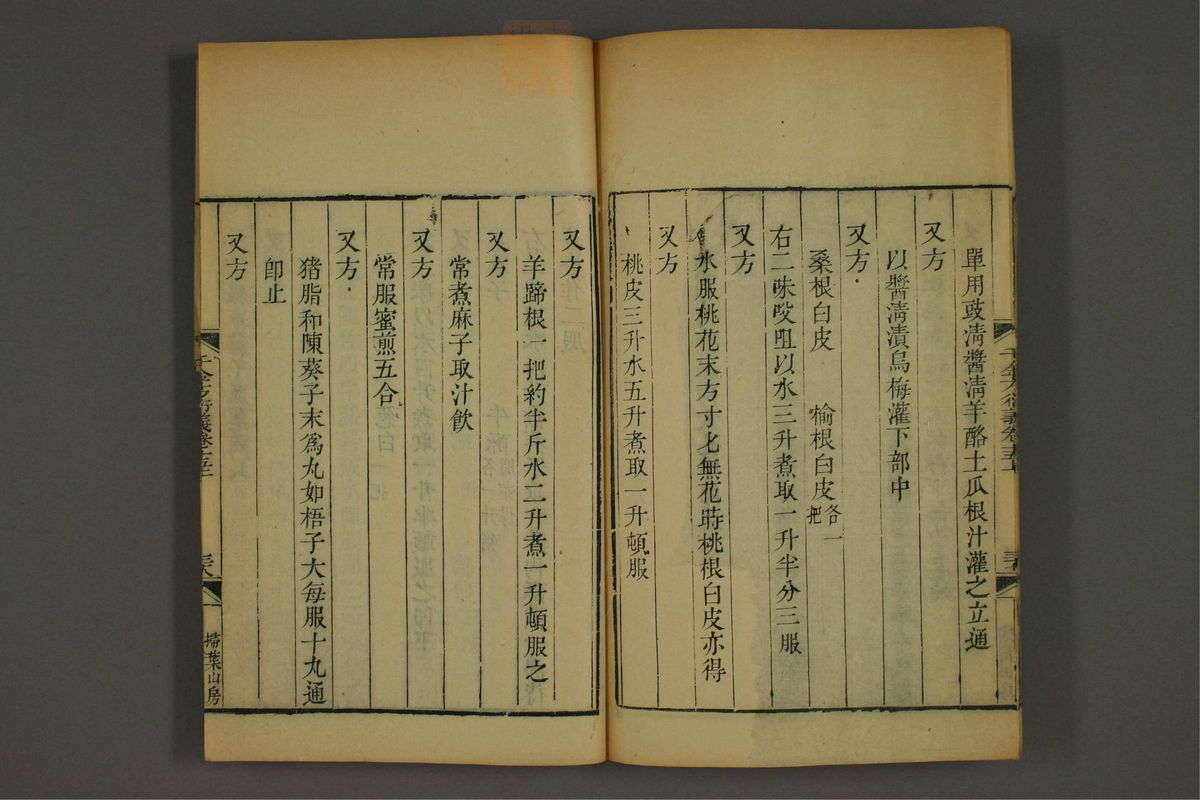 單用豉淸醬淸羊酪土瓜根汁灌之立通
又方
以醬淸漬烏梅灌下部中
又方
桑根白皮　榆根白皮各一把
右二味㕮咀以水三升煮取一升半分三服
又方
水服桃花末方寸匕無花時桃根白皮亦得
又方
桃皮三升水五升煮取一升頓服
又方
羊蹄根一把約半斤水二升煮一升頓服之
又方
常煮麻子取汁飲
又方
常服蜜煎五合
又方
猪脂和陳葵子末爲丸如梧子大每服十丸通
卽止
又方
千金方衍義卷十五
掃葉山房